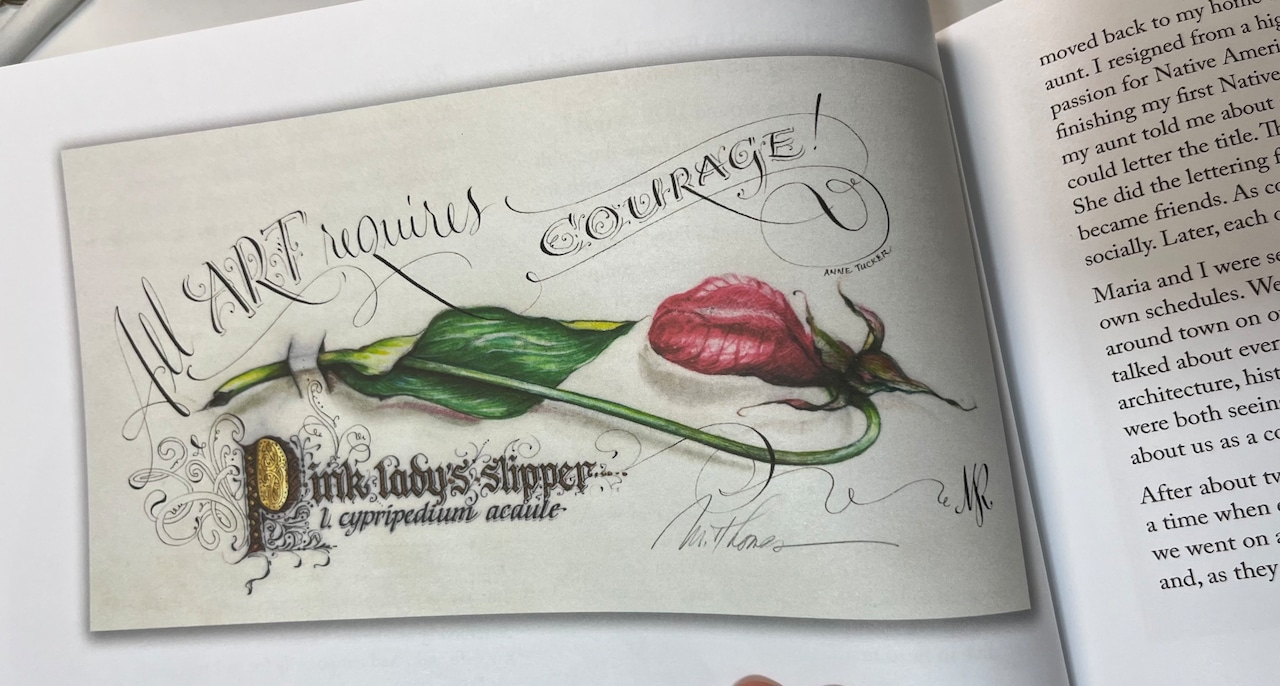 All ART requires COURAGE!
ANNE TUCKER
Pink lady's slipper
l. cypripedium acaule
M. Thomas
moved back to my home
aunt. I resigned from a
passion for Native
finishing my first Native
my aunt told me about
could letter the title.
She did the lettering
became friends. As
socially. Later, each
Maria and I were
own schedules. We
around town on
talked about
architecture,
were both
about us as a
After about
a time when
we went on
and, as they